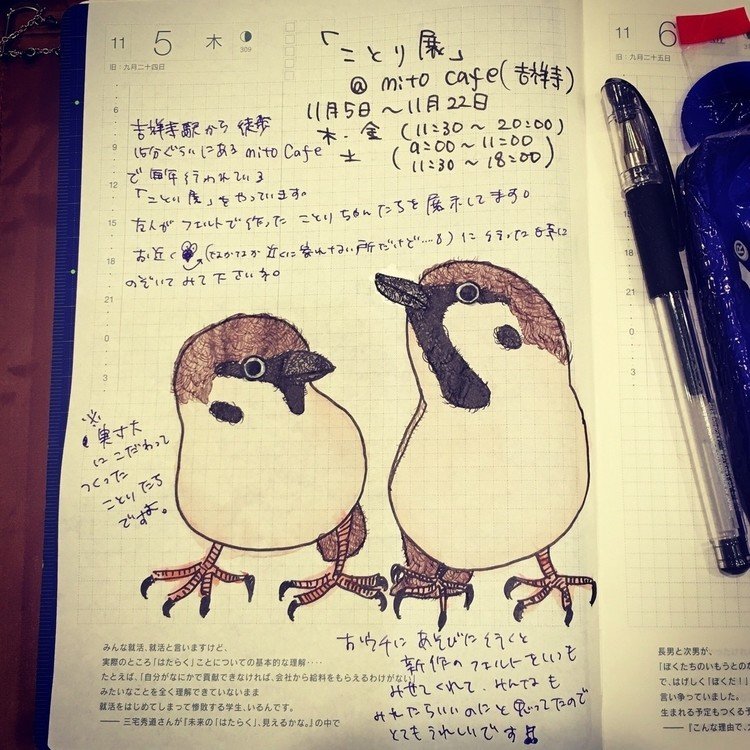 11 5 木 309
旧：九月二十四日
「ことり展」
@ mito cafe(吉祥寺)
11月5日〜11月22日
木・金 (11:30〜20:00)
土 (9:00〜11:00
11:30〜18:00)
吉祥寺駅から徒歩
15分ぐらいにある mito Cafe
で毎年行われている
「ことり展」をやっています。
友人がフェルトで作ったことりちゃんたちを展示してます。
お近く(なかなか近くに寄れない所だけど....)に行った時に
のぞいてみて下さいネ。
6
9
12
15
18
21
0
3
※実寸大
にこだわって
つくった
ことりたち
ですよ。
おウチにあそびに行くと
新作のフェルトをいつも
みせてくれて、みんなも
みれたらいいのにと思ってたので
とてもうれしいです
みんな就活、就活と言いますけど、
実際のところ「はたらく」ことについての基本的な理解‥‥
たとえば、「自分がなにかで貢献できなければ、会社から給料をもらえるわけがない」
みたいなことを全く理解できていないまま
就活をはじめてしまって惨敗する学生、いるんです。
―― 三宅秀道さんが『未来の「はたらく」、見えるかな。』の中で
11 6
旧：九月二十五日
6
9
12
15
18
21
0
3
長男と次男が、
「ぼくたちのいもうとの
で、はげしく「ぼくだ！」
言い争っていました。
生まれる予定もつくる予
――『こんな理由で‥